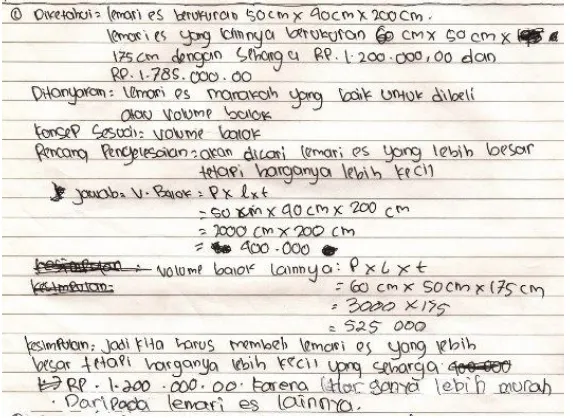 ① Diketahui = lemari es berukuran 50cm x 40cm x 200cm.
lemari es yang lainnya berukuran 60 cm x 50 cm x
175 cm dengan seharga RP. 1.200.000,00 dan
RP. 1.785.000.00
Ditanyakan = lemari es manakah yang baik untuk dibeli
atau volume balok
konsep sesuai = volume balok
Rencana Penyelesaian = akan dicari lemari es yang lebih besar
tetapi harganya lebih kecil
jawab = V. Balok = P x l x t
= 50 cm x 40 cm x 200 cm
= 2000 cm x 200 cm
= 400.000
volume balok lainnya = P x L x t
kesimpulan = = 60 cm x 50cm x 175 cm
= 3000 x 175
= 525 000
kesimpulan = jadi kita harus membeli lemari es yang lebih
besar tetapi harganya lebih kecil yang seharga 400.000
RP. 1.200.000.00. karena Harganya lebih murah
. Daripada lemari es lainnya.